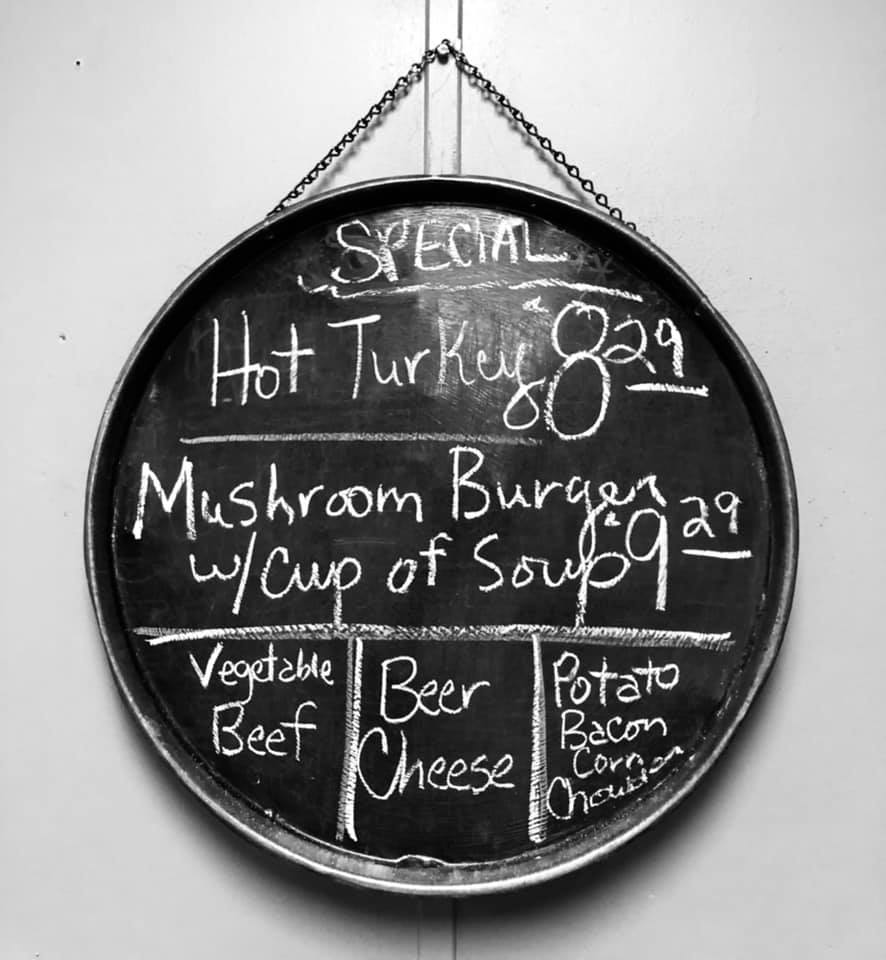 SPECIAL
Hot Turkey 8 29
Mushroom Burger
w/Cup of Soup 9 29
Vegetable
Beef
Beer
Cheese
Potato
Bacon
Corn
Chowder